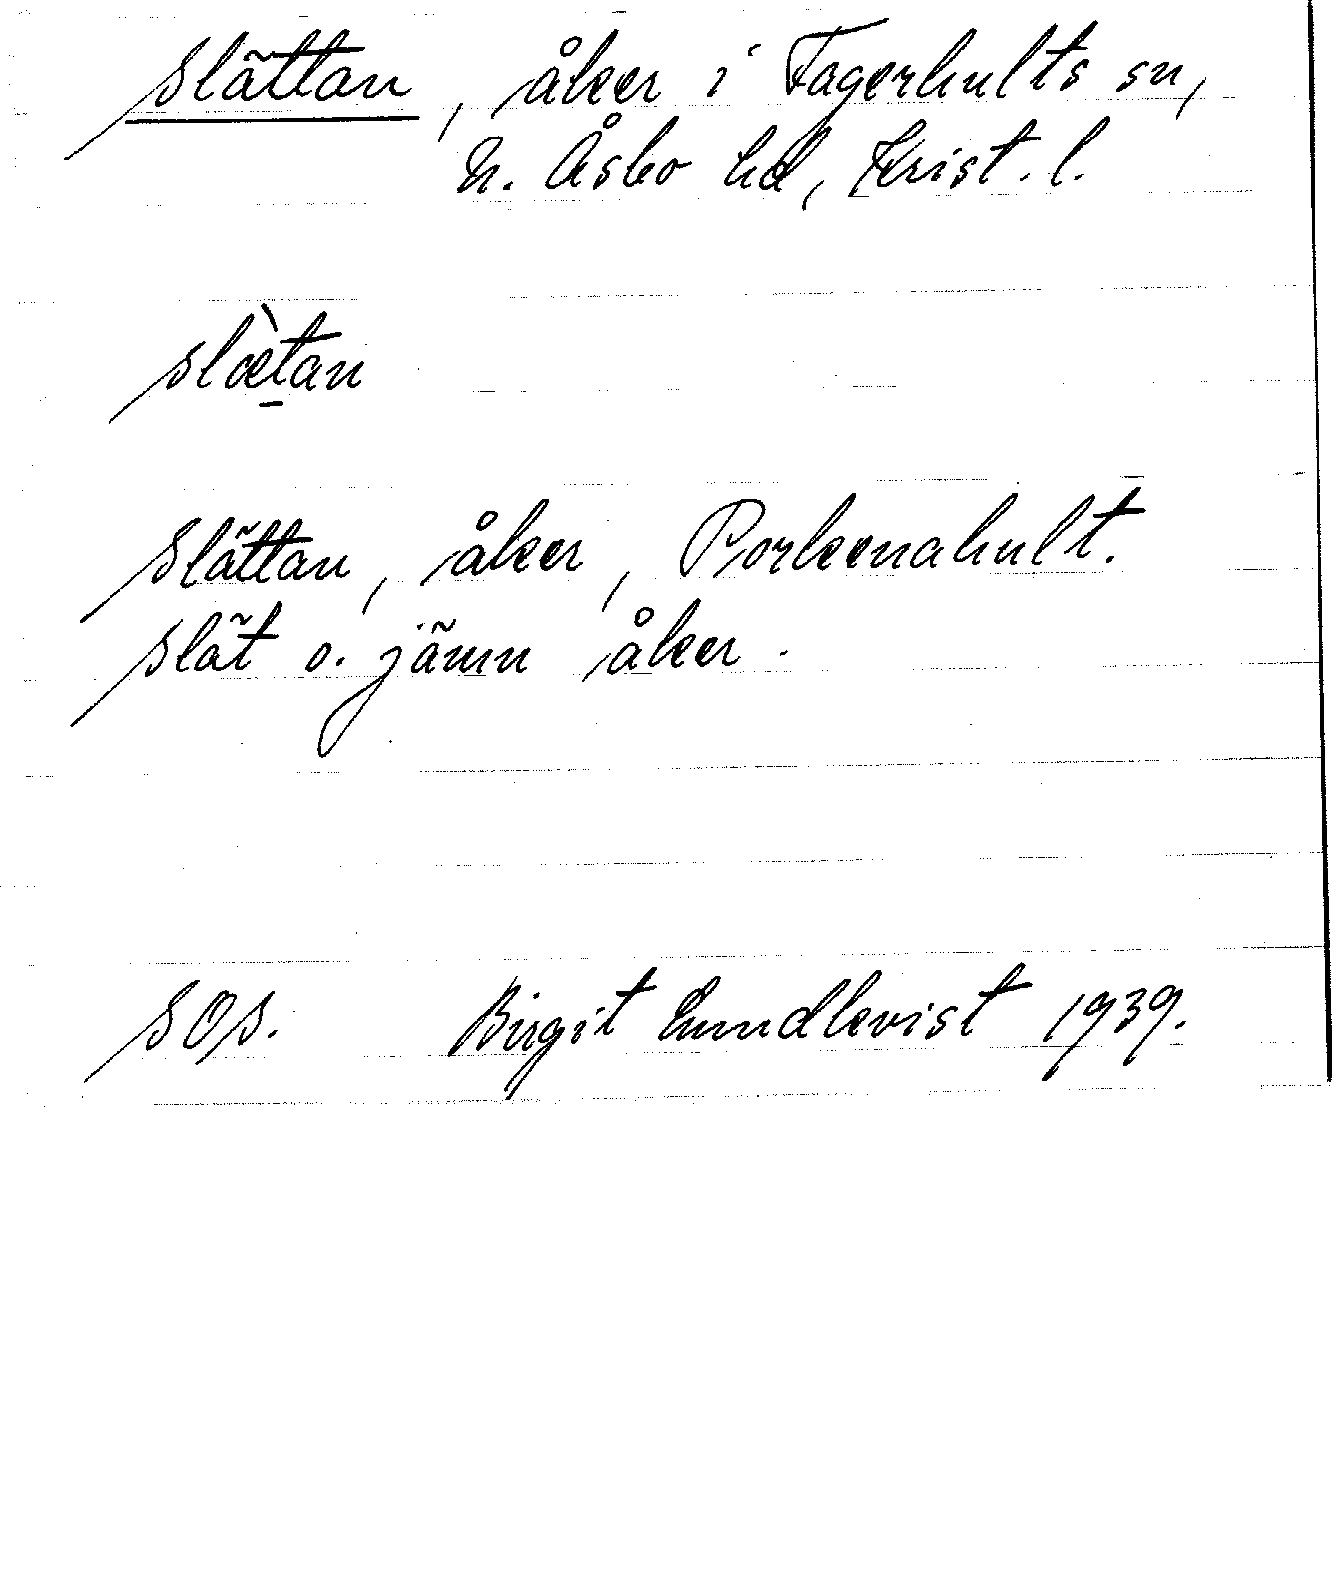 Slättan, åker i Fagerhults sn,
N. Åsbo hd, Krist. l.
slæ̀tan
Slättan, åker, Porkenahult.
Slät o. jämn åker.
SOS. Birgit Lundkvist 1939.